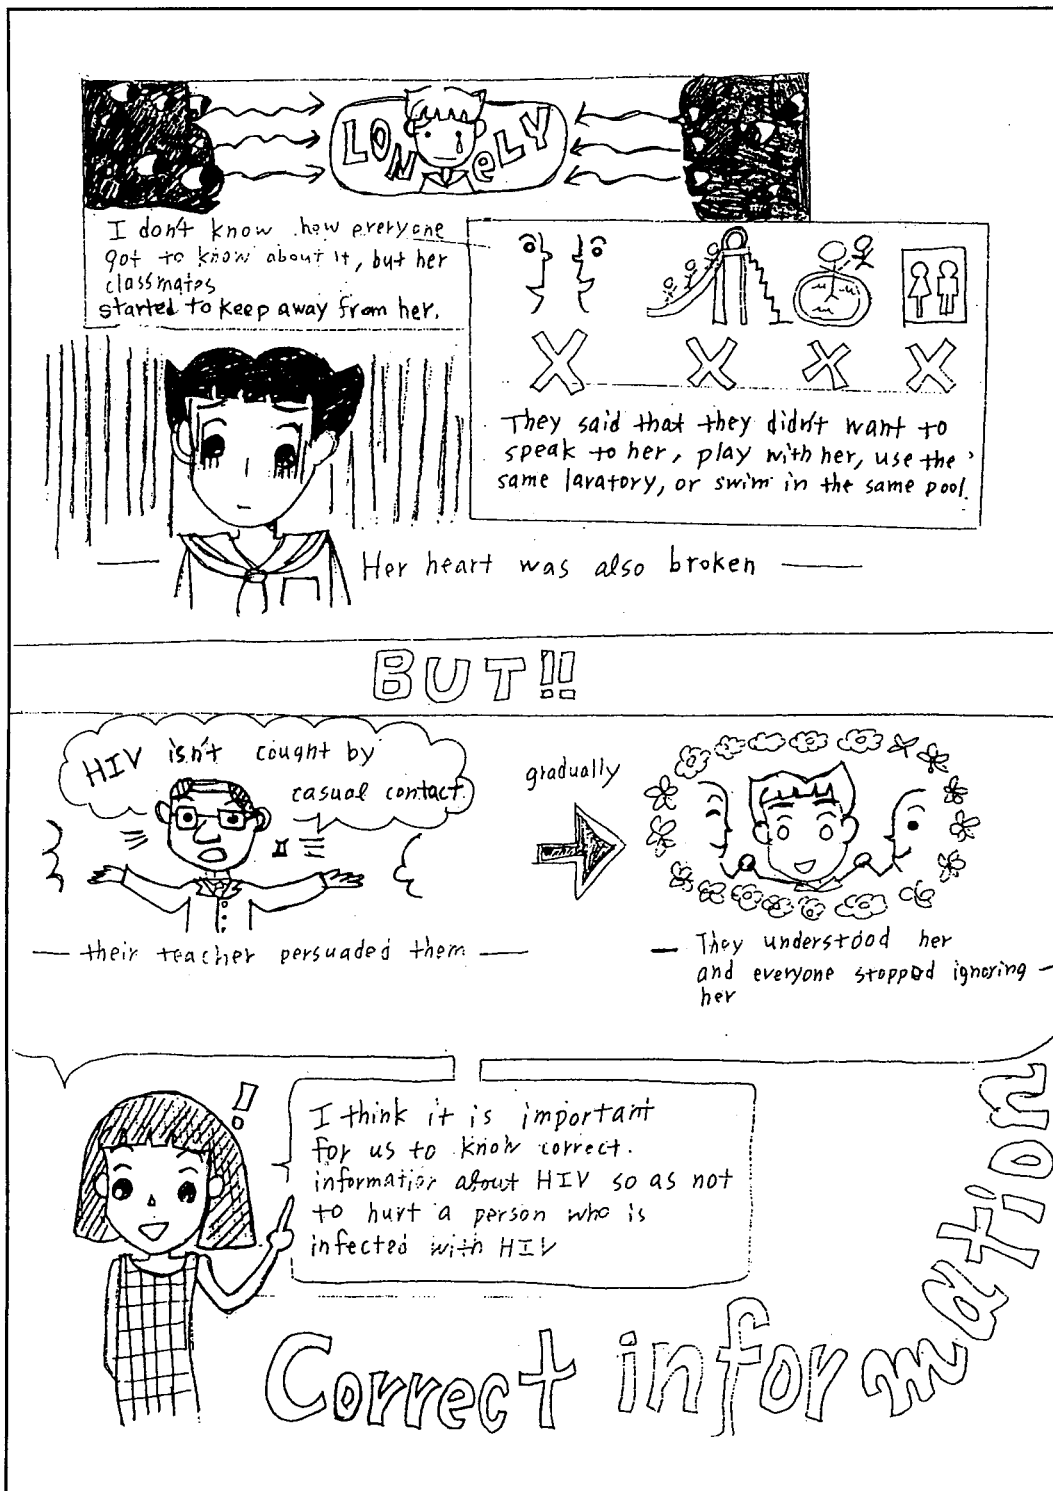 LONeLY
I don't know how everyone
got to know about it, but her
classmates
started to keep away from her.
They said that they didn't want to
speak to her, play with her, use the
same lavatory, or swim in the same pool.
Her heart was also broken
BUT!!
HIV isn't cought by
casual contact.
gradually
their teacher persuaded them
They understood her
and everyone stopped ignoring
her
!
I think it is important
for us to know correct.
information about HIV so as not
to hurt a person who is
infected with HIV
Correct information